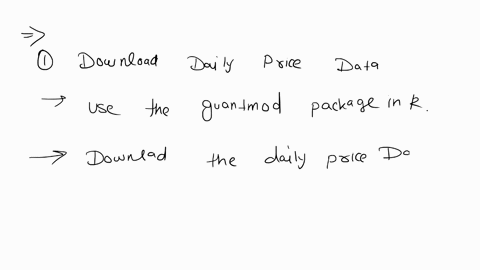 ⇒
① Download Daily Price Data
→ use the quantmod package in R.
→ Downlad the daily price Da